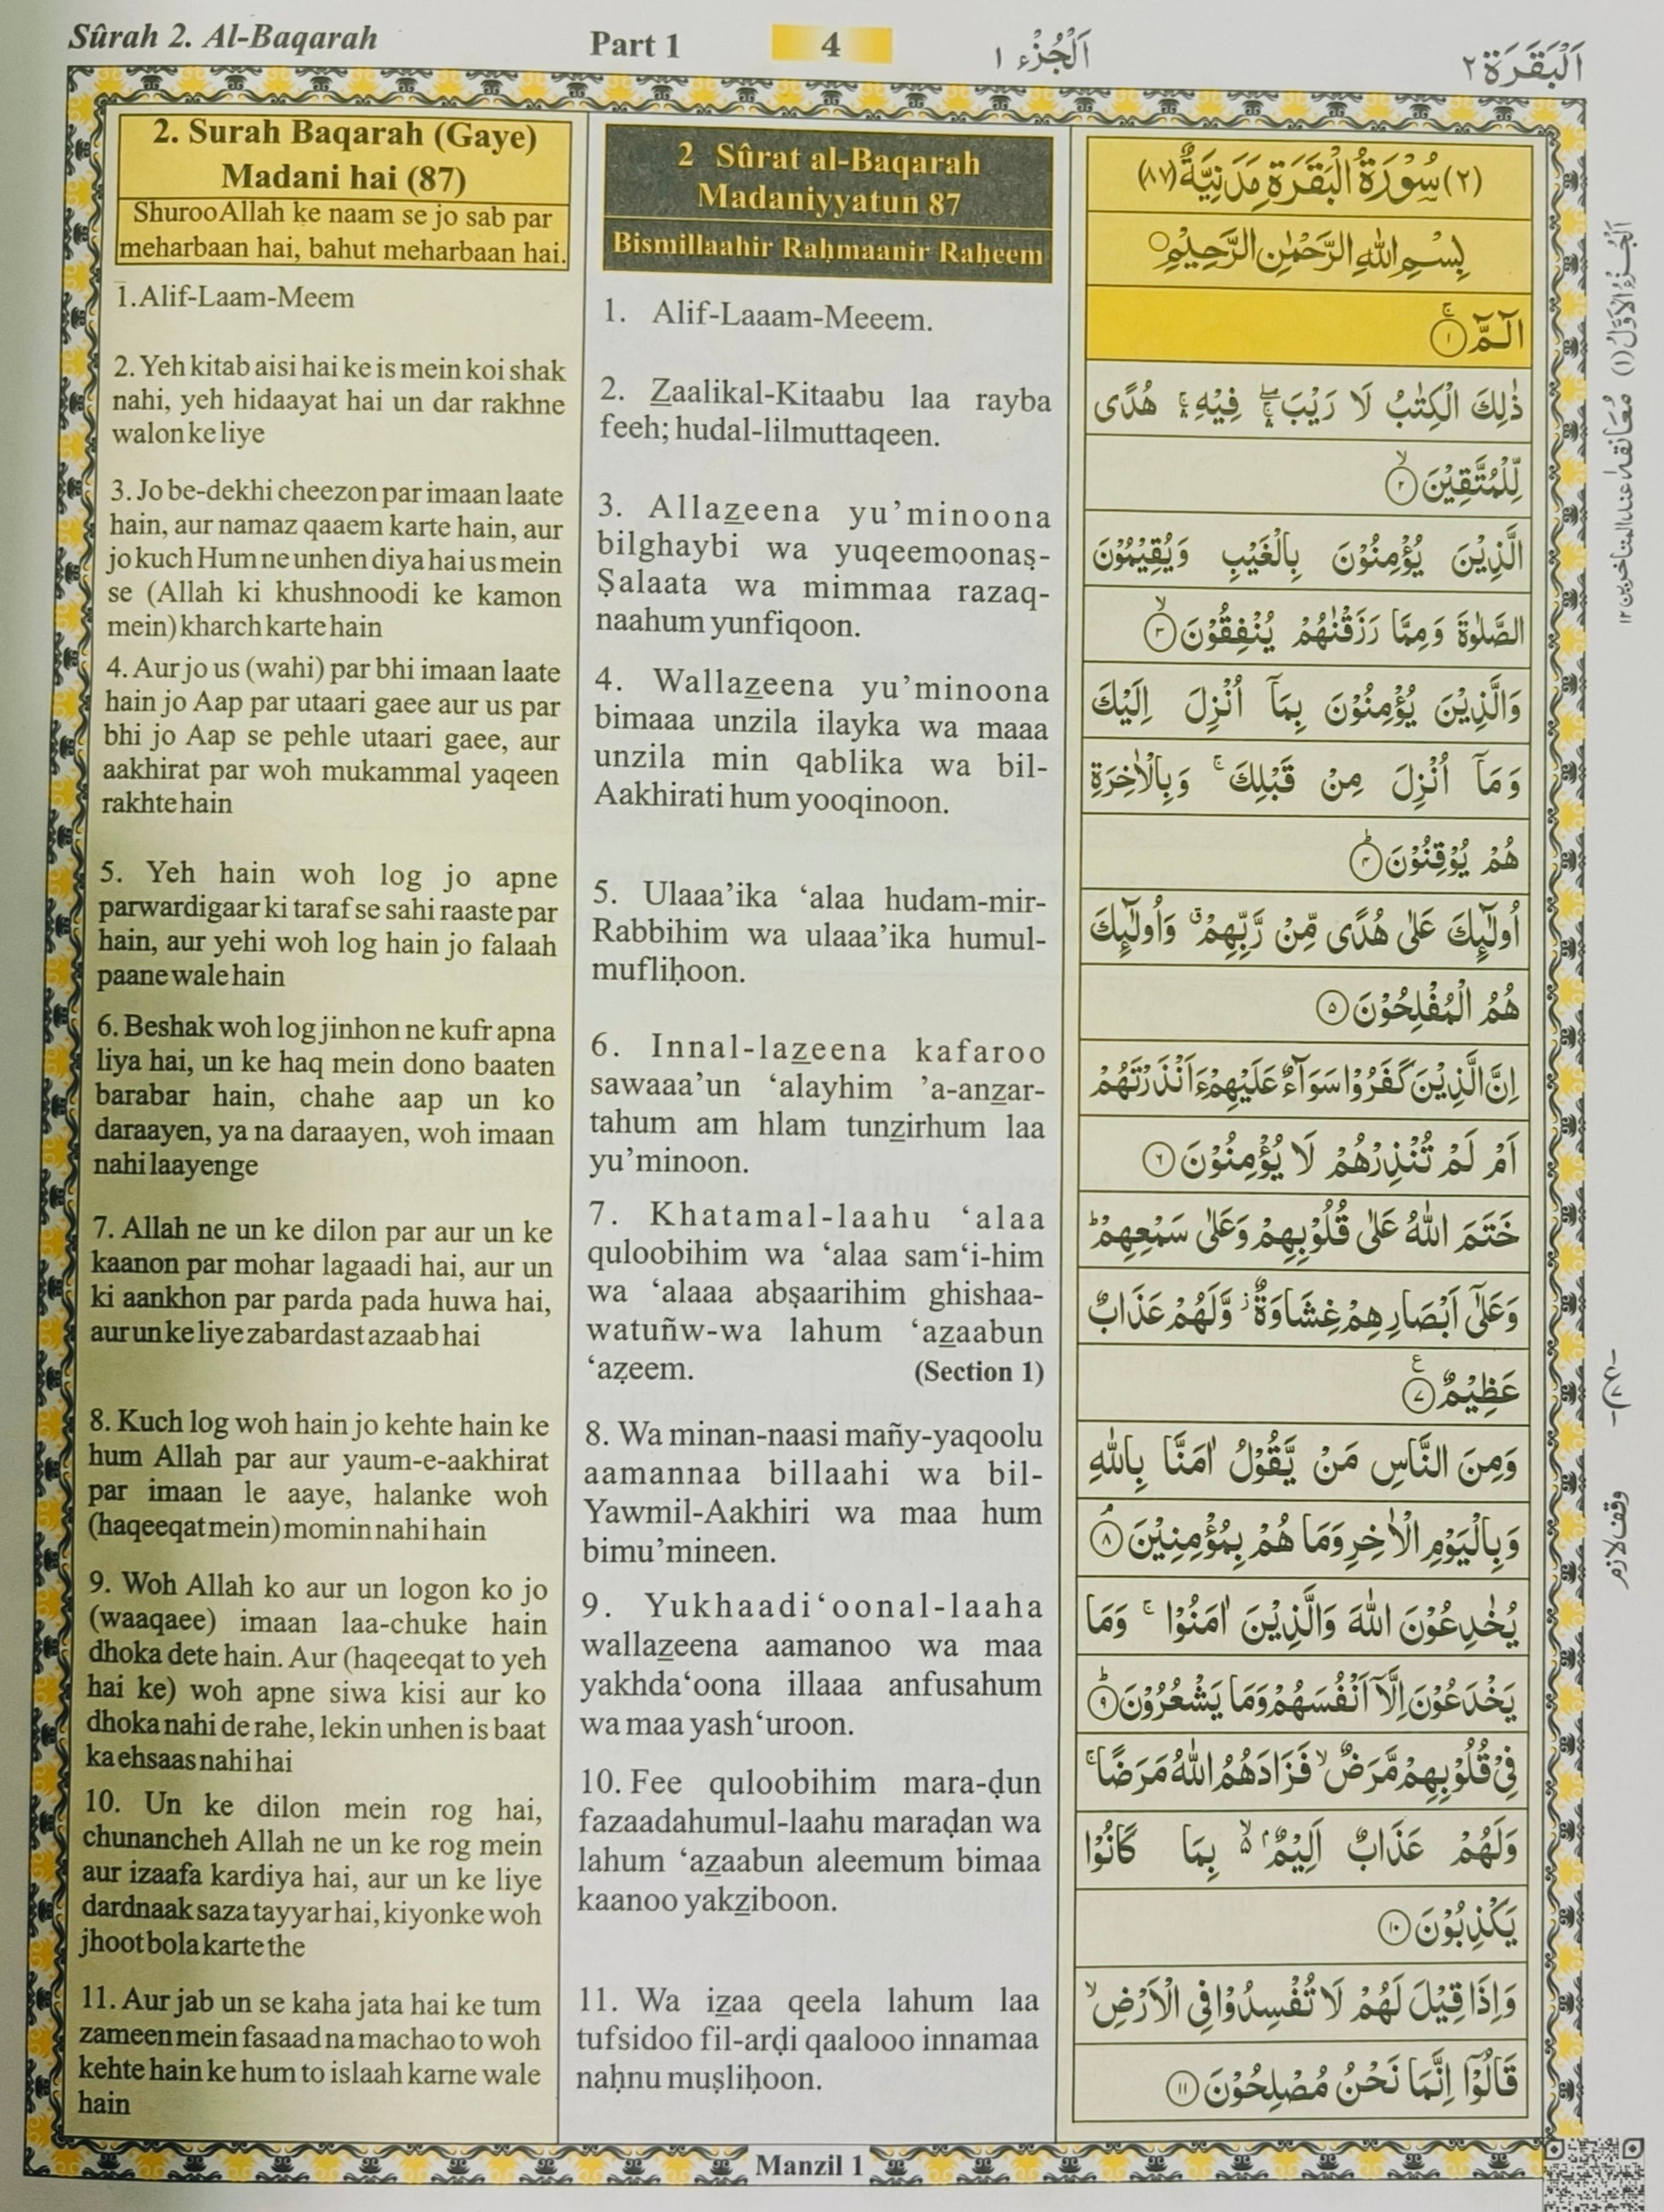 Sûrah 2. Al-Baqarah
Part 1
4
اَلْجُزْء ١
اَلْبَقَرَة ٢
2. Surah Baqarah (Gaye)
Madani hai (87)
Shuroo Allah ke naam se jo sab par
meharbaan hai, bahut meharbaan hai.
1.Alif-Laam-Meem
2. Yeh kitab aisi hai ke is mein koi shak
nahi, yeh hidaayat hai un dar rakhne
walon ke liye
3. Jo be-dekhi cheezon par imaan laate
hain, aur namaz qaaem karte hain, aur
jo kuch Hum ne unhen diya hai us mein
se (Allah ki khushnoodi ke kamon
mein) kharch karte hain
4. Aur jo us (wahi) par bhi imaan laate
hain jo Aap par utaari gaee aur us par
bhi jo Aap se pehle utaari gaee, aur
aakhirat par woh mukammal yaqeen
rakhte hain
5. Yeh hain woh log jo apne
parwardigaar ki taraf se sahi raaste par
hain, aur yehi woh log hain jo falaah
paane wale hain
6. Beshak woh log jinhon ne kufr apna
liya hai, un ke haq mein dono baaten
barabar hain, chahe aap un ko
daraayen, ya na daraayen, woh imaan
nahi laayenge
7. Allah ne un ke dilon par aur un ke
kaanon par mohar lagaadi hai, aur un
ki aankhon par parda pada huwa hai,
aur un ke liye zabardast azaab hai
8. Kuch log woh hain jo kehte hain ke
hum Allah par aur yaum-e-aakhirat
par imaan le aaye, halanke woh
(haqeeqat mein) momin nahi hain
9. Woh Allah ko aur un logon ko jo
(waaqaee) imaan laa-chuke hain
dhoka dete hain. Aur (haqeeqat to yeh
hai ke) woh apne siwa kisi aur ko
dhoka nahi de rahe, lekin unhen is baat
ka ehsaas nahi hai
10. Un ke dilon mein rog hai,
chunancheh Allah ne un ke rog mein
aur izaafa kardiya hai, aur un ke liye
dardnaak saza tayyar hai, kiyonke woh
jhoot bola karte the
11. Aur jab un se kaha jata hai ke tum
zameen mein fasaad na machao to woh
kehte hain ke hum to islaah karne wale
hain
2 Sûrat al-Baqarah
Madaniyyatun 87
Bismillaahir Raḥmaanir Raḥeem
1. Alif-Laaam-Meeem.
2. Z̲aalikal-Kitaabu laa rayba
feeh; hudal-lilmuttaqeen.
3. Allaz̲eena yu’minoona
bilghaybi wa yuqeemoonaṣ-
Ṣalaata wa mimmaa razaq-
naahum yunfiqoon.
4. Wallaz̲eena yu’minoona
bimaaa unzila ilayka wa maaa
unzila min qablika wa bil-
Aakhirati hum yooqinoon.
5. Ulaaa’ika ‘alaa hudam-mir-
Rabbihim wa ulaaa’ika humul-
mufliḥoon.
6. Innal-laz̲eena kafaroo
sawaaa’un ‘alayhim ’a-anz̲ar-
tahum am hlam tunz̲irhum laa
yu’minoon.
7. Khatamal-laahu ‘alaa
quloobihim wa ‘alaa sam‘i-him
wa ‘alaaa abṣaarihim ghishaa-
watuñw-wa lahum ‘az̲aabun
‘aẓeem. (Section 1)
8. Wa minan-naasi mañy-yaqoolu
aamannaa billaahi wa bil-
Yawmil-Aakhiri wa maa hum
bimu’mineen.
9. Yukhaadi‘oonal-laaha
wallaz̲eena aamanoo wa maa
yakhda‘oona illaaa anfusahum
wa maa yash‘uroon.
10. Fee quloobihim mara-ḍun
fazaadahumul-laahu maraḍan wa
lahum ‘az̲aabun aleemum bimaa
kaanoo yakz̲iboon.
11. Wa iz̲aa qeela lahum laa
tufsidoo fil-arḍi qaalooo innamaa
naḥnu muṣliḥoon.
(٢) سُوْرَةُ الْبَقَرَةِ مَدَنِيَّةٌ (٨٧)
بِسْمِ اللّٰهِ الرَّحْمٰنِ الرَّحِيْمِ
الٓمّٓ ۚ ١
ذٰلِكَ الْكِتٰبُ لَا رَيْبَ ۛۖ فِيْهِ ۛۚ هُدًى
لِّلْمُتَّقِيْنَ ۙ ٢
الَّذِيْنَ يُؤْمِنُوْنَ بِالْغَيْبِ وَيُقِيْمُوْنَ
الصَّلٰوةَ وَمِمَّا رَزَقْنٰهُمْ يُنْفِقُوْنَ ۙ ٣
وَالَّذِيْنَ يُؤْمِنُوْنَ بِمَآ اُنْزِلَ اِلَيْكَ
وَمَآ اُنْزِلَ مِنْ قَبْلِكَ ۚ وَبِالْاٰخِرَةِ
هُمْ يُوْقِنُوْنَ ؕ ٤
اُولٰٓئِكَ عَلٰى هُدًى مِّنْ رَّبِّهِمْ ۗ وَاُولٰٓئِكَ
هُمُ الْمُفْلِحُوْنَ ٥
اِنَّ الَّذِيْنَ كَفَرُوْا سَوَآءٌ عَلَيْهِمْ ءَاَنْذَرْتَهُمْ
اَمْ لَمْ تُنْذِرْهُمْ لَا يُؤْمِنُوْنَ ٦
خَتَمَ اللّٰهُ عَلٰى قُلُوْبِهِمْ وَعَلٰى سَمْعِهِمْ ؕ
وَعَلٰٓى اَبْصَارِهِمْ غِشَاوَةٌ ز وَّلَهُمْ عَذَابٌ
عَظِيْمٌ ٧ ع
وَمِنَ النَّاسِ مَنْ يَّقُوْلُ اٰمَنَّا بِاللّٰهِ
وَبِالْيَوْمِ الْاٰخِرِ وَمَا هُمْ بِمُؤْمِنِيْنَ ۘ ٨
يُخٰدِعُوْنَ اللّٰهَ وَالَّذِيْنَ اٰمَنُوْا ۚ وَمَا
يَخْدَعُوْنَ اِلَّآ اَنْفُسَهُمْ وَمَا يَشْعُرُوْنَ ؕ ٩
فِيْ قُلُوْبِهِمْ مَّرَضٌ ۙ فَزَادَهُمُ اللّٰهُ مَرَضًا ۚ
وَلَهُمْ عَذَابٌ اَلِيْمٌۢ ۙ بِمَا كَانُوْا
يَكْذِبُوْنَ ١٠
وَاِذَا قِيْلَ لَهُمْ لَا تُفْسِدُوْا فِي الْاَرْضِ ۙ
قَالُوْٓا اِنَّمَا نَحْنُ مُصْلِحُوْنَ ١١
اَلْجُزْءُ الْاَوَّلُ (١) مُعَانَقَه عند المتاخرين ١٢
وقف لازم
Manzil 1